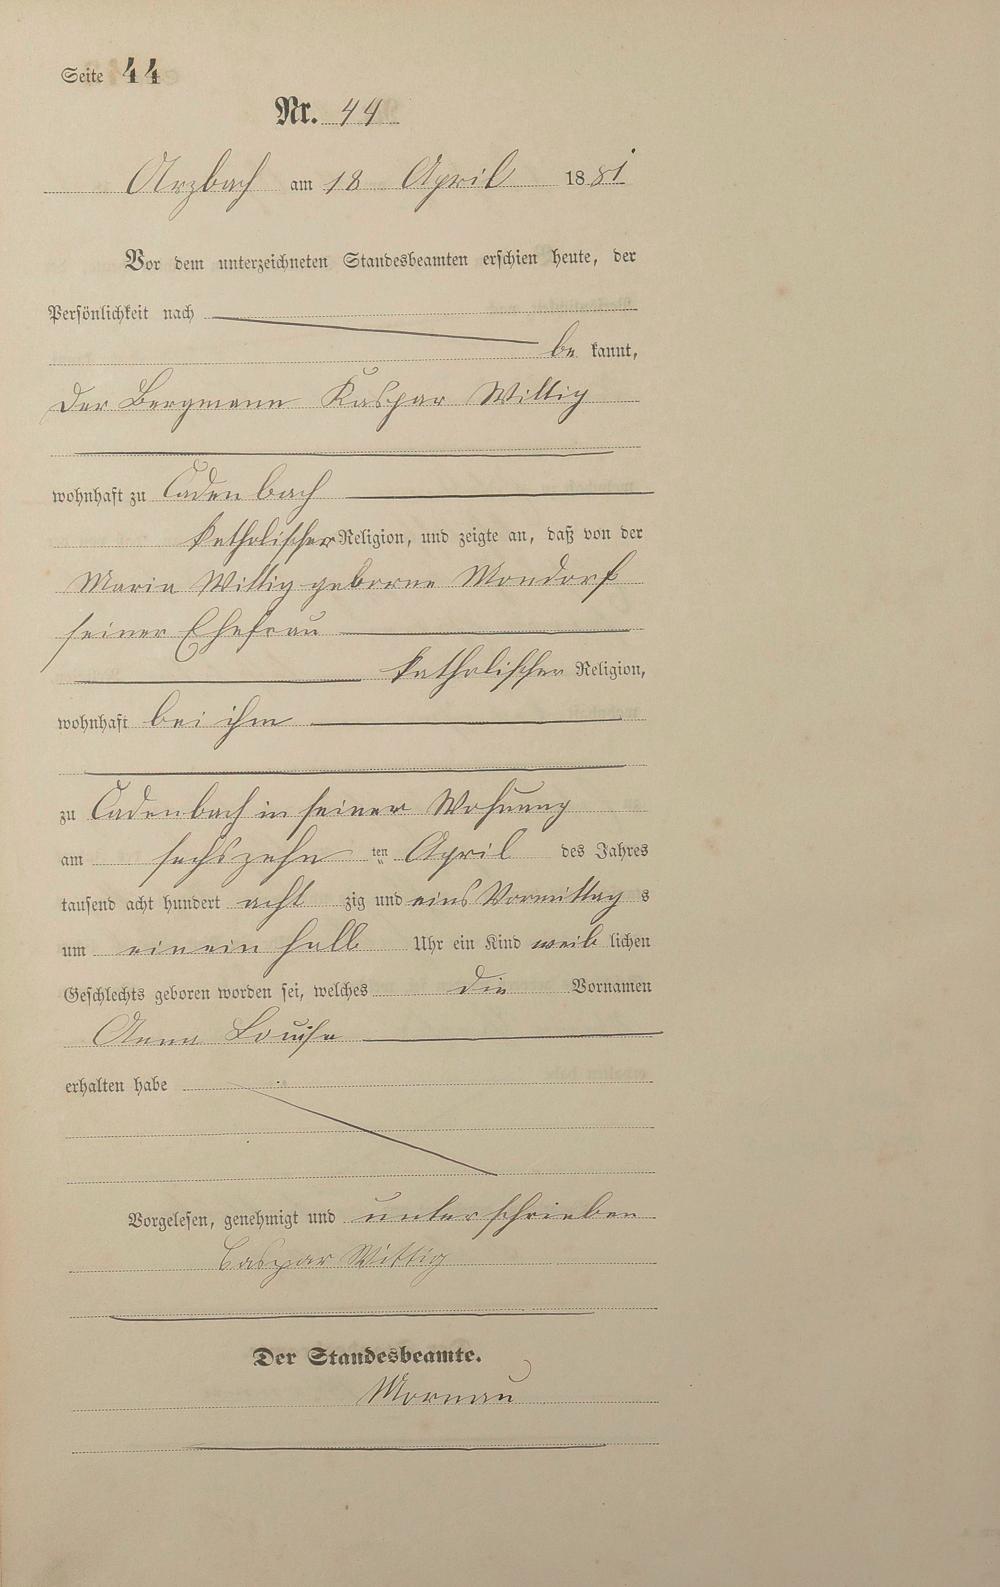 Seite 44
Nr. 44
Arzbach am 18 April 1881
Vor dem unterzeichneten Standesbeamten erschien heute, der
Persönlichkeit nach
be kannt,
der Bergmann Kaspar Wittig
wohnhaft zu Cadenbach
katholischer Religion, und zeigte an, daß von der
Maria Wittig geborne Mondorf
seiner Ehefrau
katholischer Religion,
wohnhaft bei ihm
zu Cadenbach in seiner Wohnung
am sechszehn ten April des Jahres
tausend acht hundert acht zig und eins Vormittag s
um einein halb Uhr ein Kind weib lichen
Geschlechts geboren worden sei, welches die Vornamen
Anna Louise
erhalten habe
Vorgelesen, genehmigt und unterschrieben
Caspar Wittig
Der Standesbeamte.
Mornau